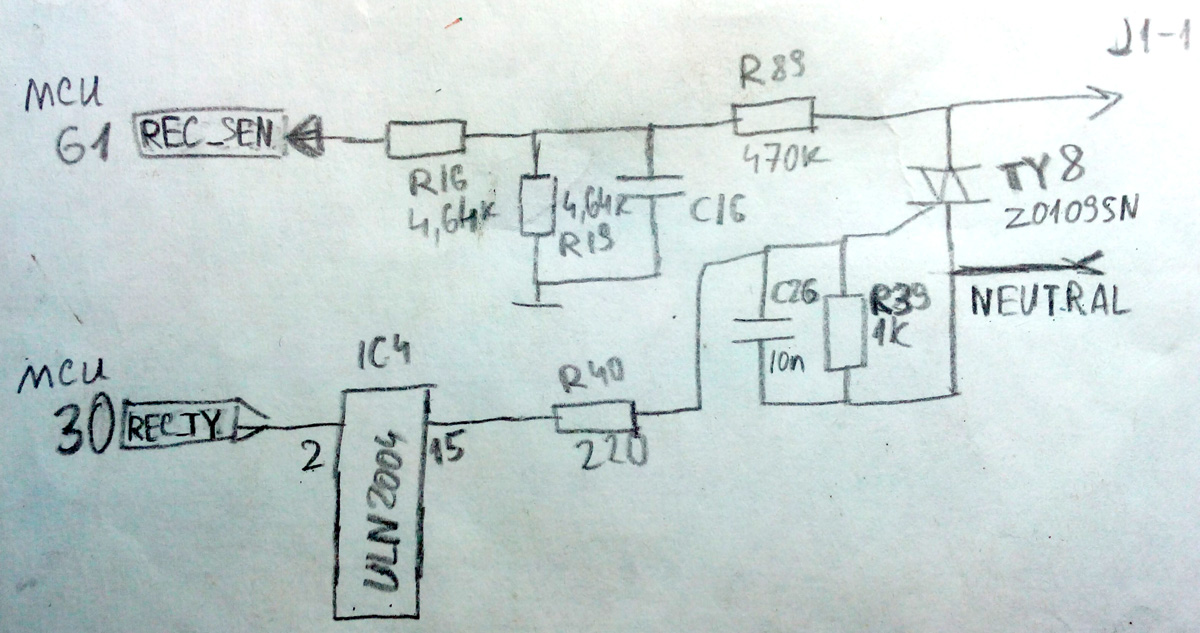 J1-1
MCU
61
REC_SEN
R16
4,64K
4,64K
R19
C16
R89
470K
TY8
Z0109SN
NEUTRAL
C26
10n
R39
1K
MCU
30
REC_TY
IC4
2
15
ULN2004
R40
220